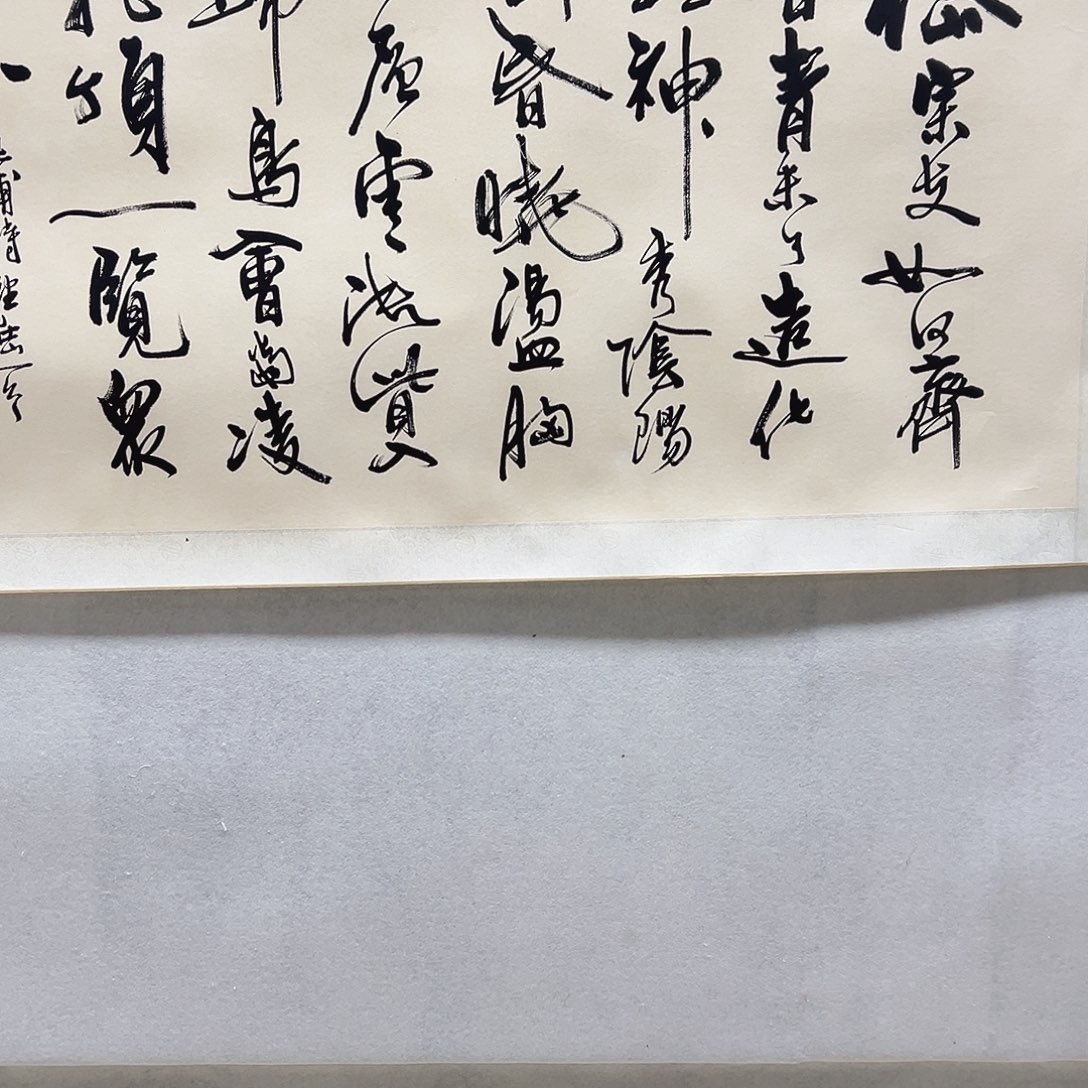 岱宗夫如何齊
青未了造化
神秀陰陽
昏曉盪胸
層雲決眥入
歸鳥會當凌
頂一覽眾
甫詩望岳一首